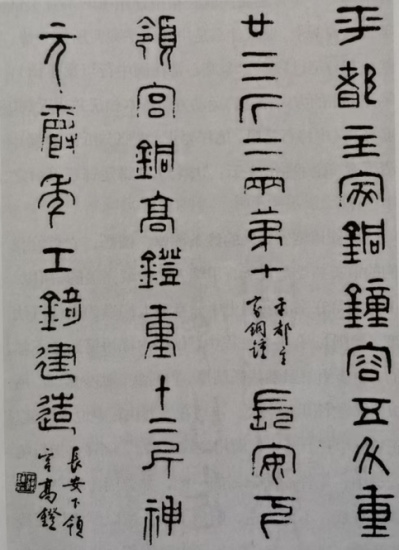 平都主家銅鐘容五斗重
廿三斤二兩第十
平都主
家銅鐘
長安下
領宮銅高鐙重十二斤神
元爵年工錡建造
長安下領
宮高鐙